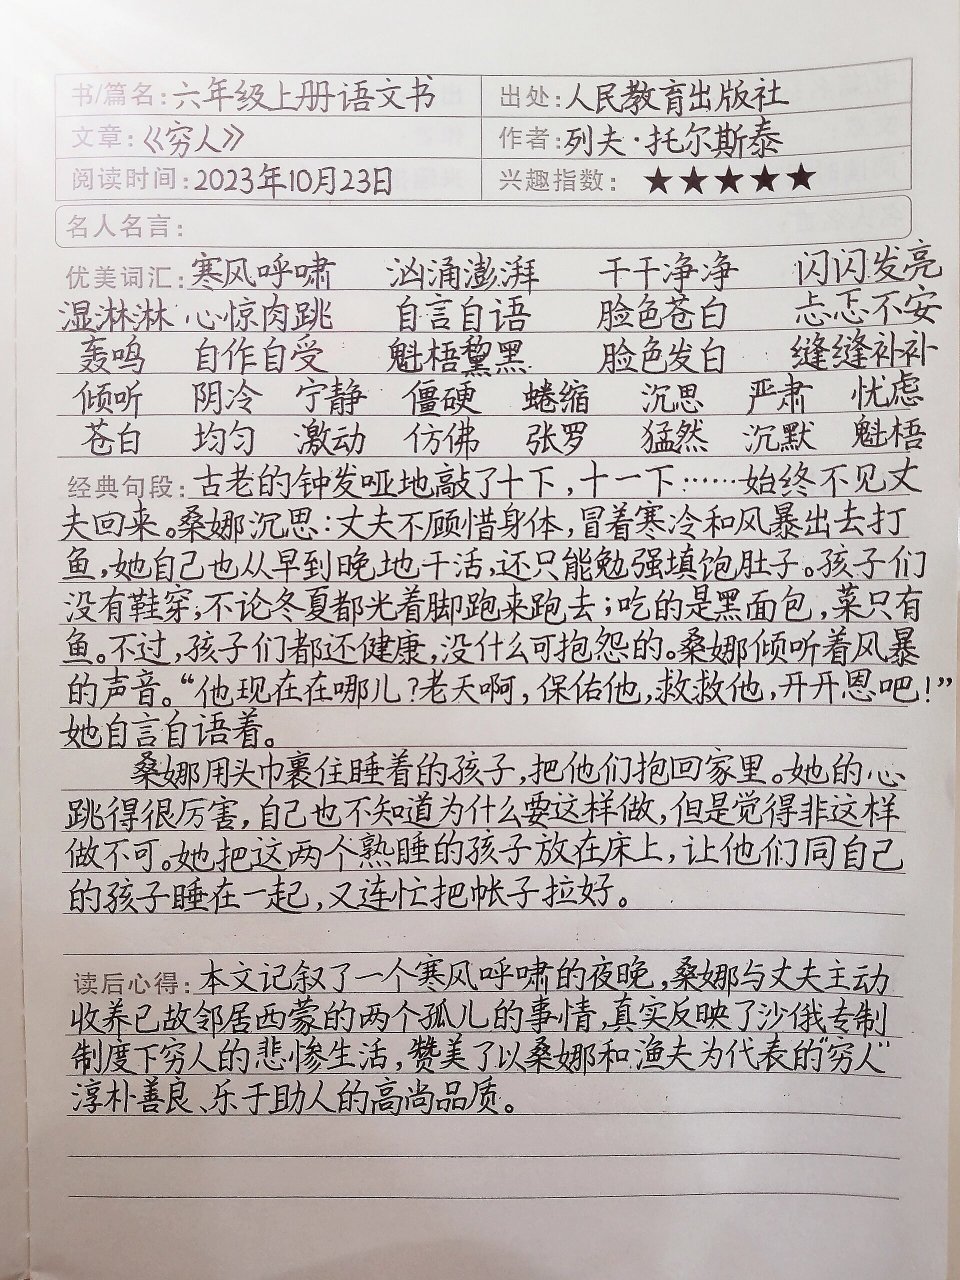 书/篇名:六年级上册语文书 出处:人民教育出版社
文章:《穷人》 作者:列夫·托尔斯泰
阅读时间:2023年10月23日 兴趣指数: ★★★★★
名人名言:
优美词汇:寒风呼啸 汹涌澎湃 干干净净 闪闪发亮
湿淋淋 心惊肉跳 自言自语 脸色苍白 忐忑不安
轰鸣 自作自受 魁梧黧黑 脸色发白 缝缝补补
倾听 阴冷 宁静 僵硬 蜷缩 沉思 严肃 忧虑
苍白 均匀 激动 仿佛 张罗 猛然 沉默 魁梧
经典句段:古老的钟发哑地敲了十下,十一下……始终不见丈
夫回来。桑娜沉思:丈夫不顾惜身体,冒着寒冷和风暴出去打
鱼,她自己也从早到晚地干活,还只能勉强填饱肚子。孩子们
没有鞋穿,不论冬夏都光着脚跑来跑去;吃的是黑面包,菜只有
鱼。不过,孩子们都还健康,没什么可抱怨的。桑娜倾听着风暴
的声音。“他现在在哪儿?老天啊,保佑他,救救他,开开恩吧!”
她自言自语着。
桑娜用头巾裹住睡着的孩子,把他们抱回家里。她的心
跳得很厉害,自己也不知道为什么要这样做,但是觉得非这样
做不可。她把这两个熟睡的孩子放在床上,让他们同自己
的孩子睡在一起,又连忙把帐子拉好。
读后心得:本文记叙了一个寒风呼啸的夜晚,桑娜与丈夫主动
收养已故邻居西蒙的两个孤儿的事情,真实反映了沙俄专制
制度下穷人的悲惨生活,赞美了以桑娜和渔夫为代表的“穷人”
淳朴善良、乐于助人的高尚品质。